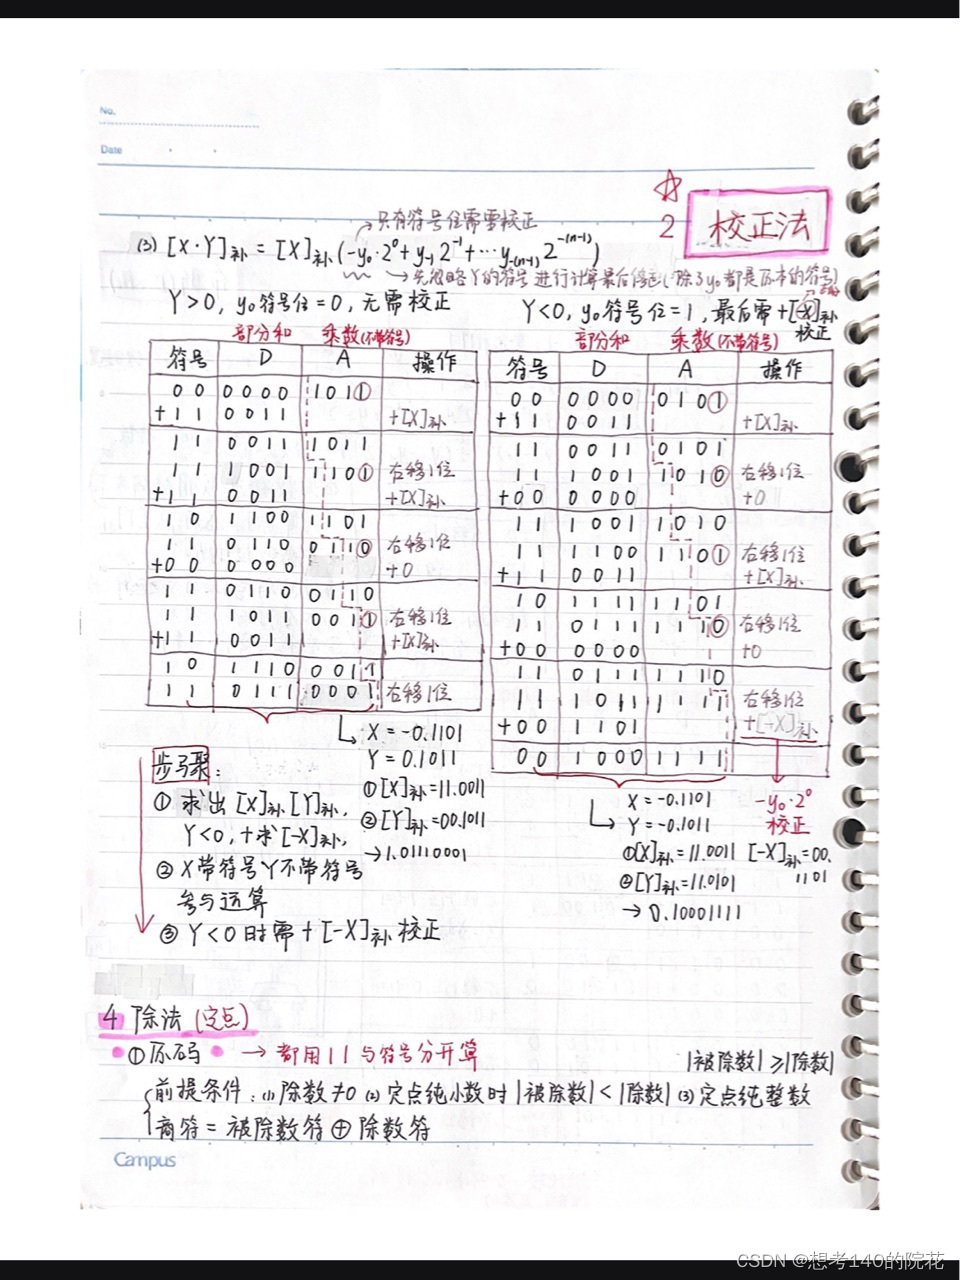 No.
Date
☆
2 校正法
→只有符号位需要校正
(3) [X·Y]补 = [X]补(-y₀·2⁰+y₋₁2⁻¹+…y₋(n-1)2⁻⁽ⁿ⁻¹⁾)
→先忽略Y的符号进行计算最后修正(除了y₀都是原本的符号)
Y>0, y₀符号位=0, 无需校正
Y<0, y₀符号位=1, 最后需+[-X]补
校正
部分和 乘数(不带符号)
符号 D A 操作
00 0000 1011
+11 0011 +[X]补
11 0011 1011
11 1001 1101 右移1位
+11 0011 +[X]补
10 1100 1101
11 0110 0110 右移1位
+00 0000 +0
11 0110 0110
11 1011 0011 右移1位
+11 0011 +[X]补
10 1110 0011
11 0111 0001 右移1位
部分和 乘数(不带符号)
符号 D A 操作
00 0000 0101
+11 0011 +[X]补
11 0011 0101
11 1001 1010 右移1位
+00 0000 +0
11 1001 1010
11 1100 1101 右移1位
+11 0011 +[X]补
10 1111 1101
11 0111 1110 右移1位
+00 0000 +0
11 0111 1110
11 1011 1111 右移1位
+00 1101 +[-X]补
00 1000 1111
X = -0.1101
Y = 0.1011
①[X]补=11.0011
②[Y]补=00.1011
→1.01110001
X = -0.1101
Y = -0.1011
①[X]补=11.0011 [-X]补=00.
1101
②[Y]补=11.0101
→0.10001111
-y₀·2⁰
校正
步骤:
① 求出[X]补[Y]补,
Y<0,+求[-X]补,
② X带符号Y不带符号
参与运算
③ Y<0时需+[-X]补校正
4 除法(定点)
①原码 → 都用11与符号分开算
|被除数|≥|除数|
前提条件:(1)除数≠0 (2)定点纯小数时|被除数|<|除数| (3)定点纯整数
商符=被除数符⊕除数符
Campus
CSDN @想考140的院花